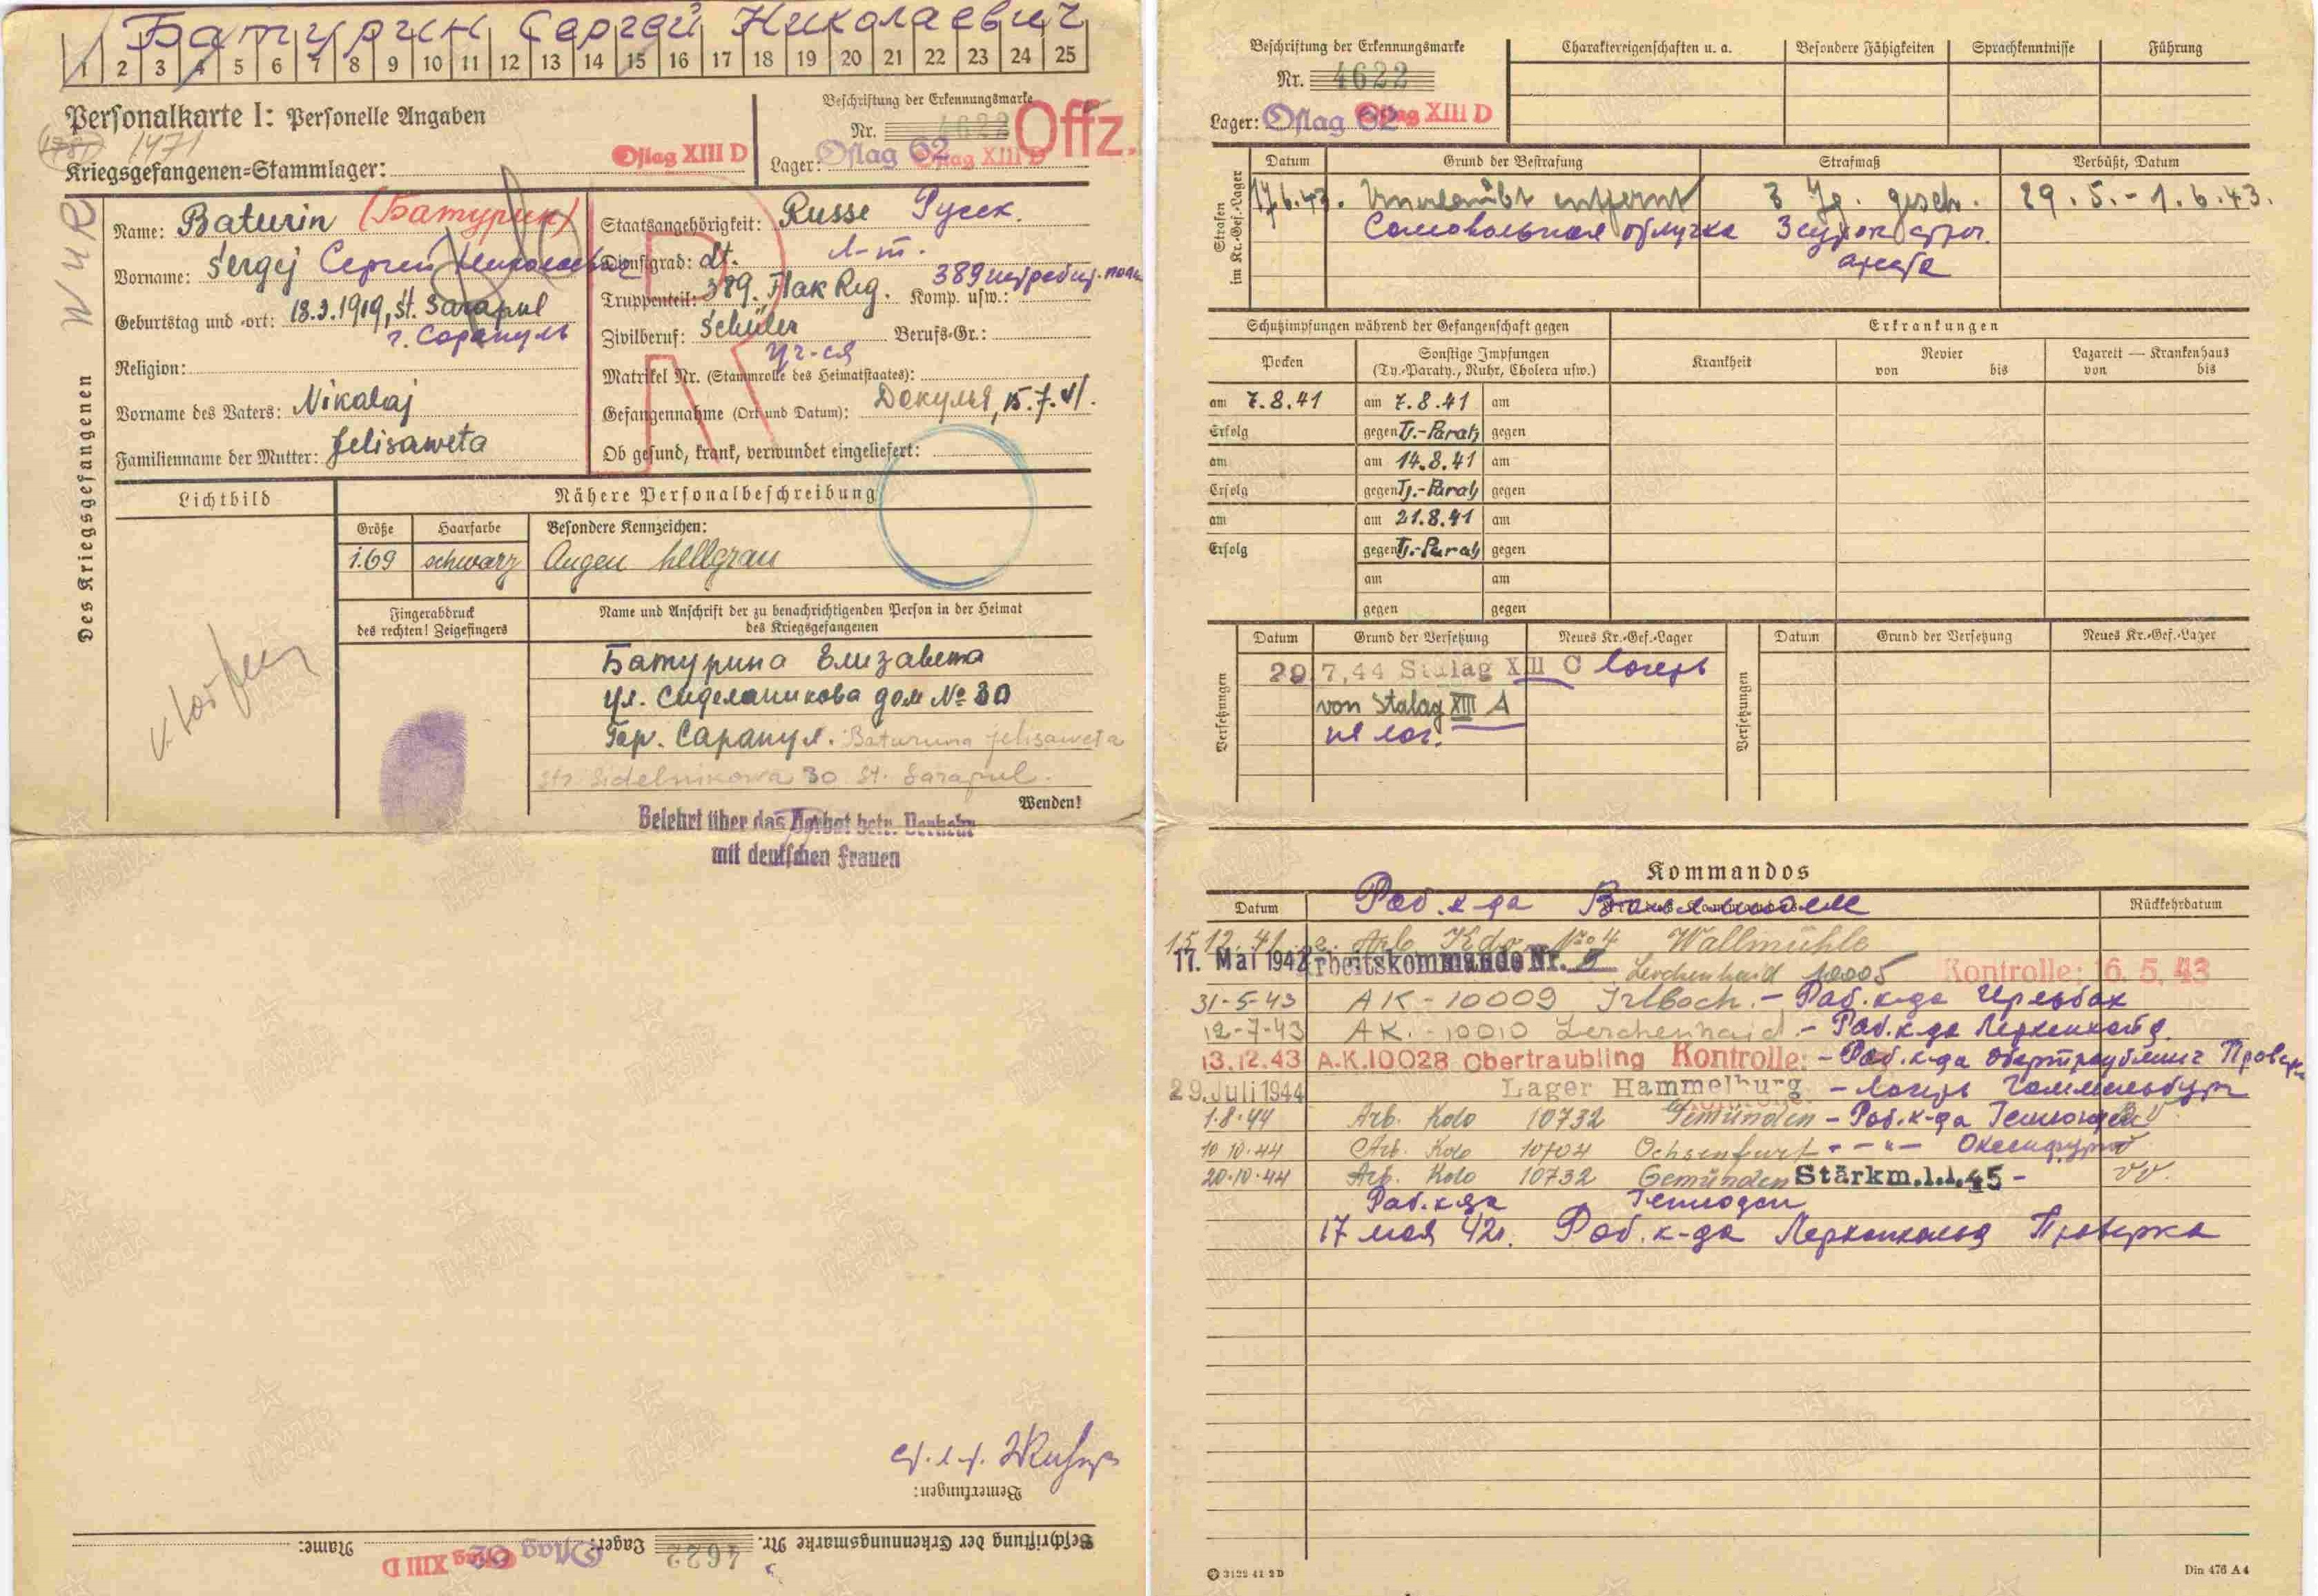 Батурин Сергей Николаевич
1 2 3 4 5 6 7 8 9 10 11 12 13 14 15 16 17 18 19 20 21 22 23 24 25
Personalkarte I: Personelle Angaben
1471
Kriegsgefangenen-Stammlager: Oflag XIII D
Beschriftung der Erkennungsmarke
Nr. 4622
Lager: Oflag 62 Oflag XIII D
Offz.
Des Kriegsgefangenen
Name: Baturin (Батурин)
Vorname: Sergej Сергей Николаевич
Geburtstag und -ort: 18.3.1919, St. Sarapul
г. Сарапуль
Religion:
Vorname des Vaters: Nikalaj
Familienname der Mutter: Jelisaweta
Staatsangehörigkeit: Russe Русск.
Dienstgrad: Lt. л-т.
Truppenteil: 389. Flak Reg. Komp. usw.: 389
Zivilberuf: Schüler Berufs-Gr.:
уч-ся
Matrikel Nr. (Stammrolle des Heimatstaates):
Gefangennahme (Ort und Datum): 15.7.41.
Ob gesund, krank, verwundet eingeliefert:
Lichtbild
Nähere Personalbeschreibung
Größe Haarfarbe Besondere Kennzeichen:
1.69 schwarz Augen hellgrau
Fingerabdruck
des rechten! Zeigefingers
Name und Anschrift der zu benachrichtigenden Person in der Heimat
des Kriegsgefangenen
Батурина Елизавета
ул. Сиделникова дом № 30
Гор. Сарапул. Baturina Jelisaweta
Str. Sidelnikowa 30 St. Sarapul.
Wenden!
Belehrt über das Verbot betr. Verkehr
mit deutschen Frauen
Bemerkungen:
Beschriftung der Erkennungsmarke Nr. 4622 Lager: Oflag 62 Oflag XIII D Name:
Beschriftung der Erkennungsmarke
Nr. 4622
Lager: Oflag 62 Oflag XIII D
Charaktereigenschaften u. a. Besondere Fähigkeiten Sprachkenntnisse Führung
Strafen
im Kr.-Gef.-Lager
Datum Grund der Bestrafung Strafmaß Verbüßt, Datum
17.6.43. Unerlaubt entfernt 3 Tg. gesch. 29.5.-1.6.43.
Самовольная отлучка 3 суток строг.
ареста
Schutzimpfungen während der Gefangenschaft gegen Erkrankungen
Pocken Sonstige Impfungen
(Ty.-Paraty., Ruhr, Cholera usw.) Krankheit Revier
von bis Lazarett — Krankenhaus
von bis
am 7.8.41 am 7.8.41 am
Erfolg gegen Ty.-Paraty gegen
am am 14.8.41 am
Erfolg gegen Ty.-Paraty gegen
am am 21.8.41 am
Erfolg gegen Ty.-Paraty gegen
am am
gegen gegen
Versetzungen
Datum Grund der Versetzung Neues Kr.-Gef.-Lager
29 7.44 Stalag XIII C лагерь
von Stalag XIII A
из лаг.
Versetzungen
Datum Grund der Versetzung Neues Kr.-Gef.-Lager
Kommandos
Datum Rückkehrdatum
Раб. к-да Вальмюле
15.12.41 Arb Kdo No 4 Wallmühle
17. Mai 1942 Arbeitskommando Nr. Lerchenhaid 10005 Kontrolle: 16. 5. 43
31-5-43 AK-10009 Irlbach. - Раб. к-да Ирльбах
12-7-43 AK.-10010 Lerchenhaid - Раб. к-да Лерхенхайд
13.12.43 A.K.10028 Obertraubling Kontrolle: - Раб. к-да Обертраублинг Проверка
29. Juli 1944 Lager Hammelburg - лагерь Хаммельбург
1.8.44 Arb. Kdo 10732 Gemünden - Раб. к-да Гемюнден
10.10.44 Arb. Kdo 10704 Ochsenfurt - - " - Оксенфурт
20.10.44 Arb. Kdo 10732 Gemünden Stärkm.1.1.45 -
Раб. к-да Гемюнден
17 мая 42г. Раб. к-да Лерхенхайд Проверка
3122 41 2D
Din 476 A 4